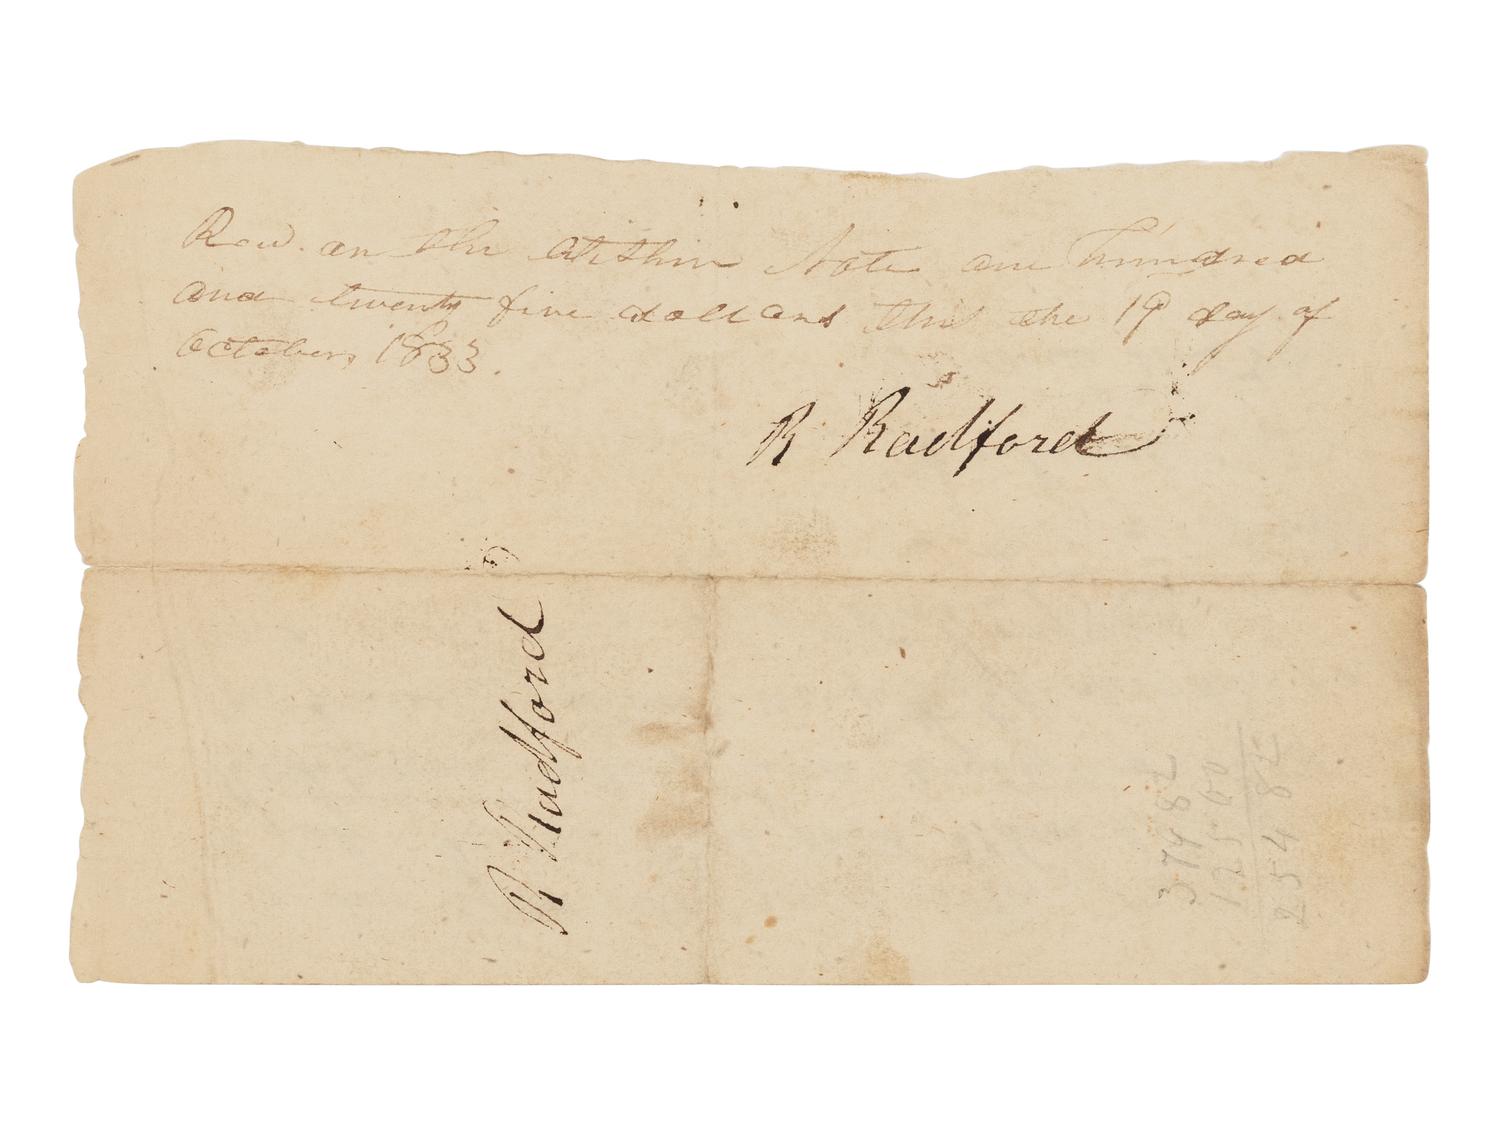 Recd. on the within Note one hundred
and twenty five dollars this the 19 day of
October, 1833.
R Radford
R Radford
374 82
125 00
254 82